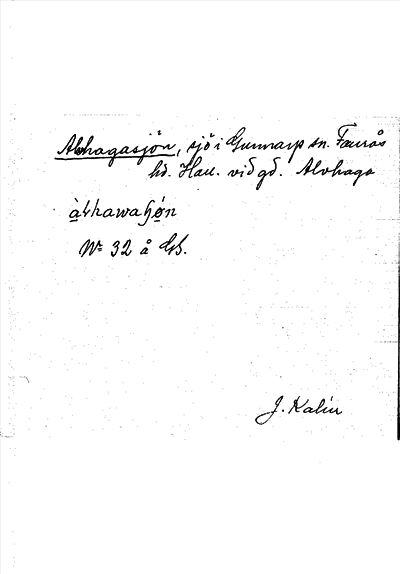 Alvhagasjön, sjö i Gunnarp sn. Faurås
hd. Hall. vid gd. Alvhaga
Nº 32 å GS.
J. Kalén